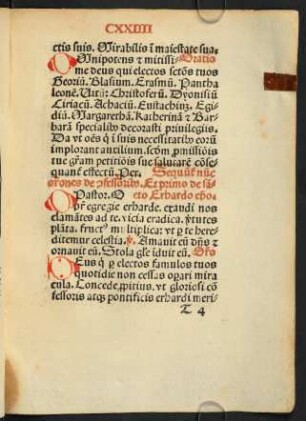 CXXIIII
ctis suis. Mirabilis ī maiestate sua.
OMnipotens ⁊ mitissi- Oratio
me deus qui electos sctōs tuos
Georiū. Blasium. Erasmū. Pantha
leonē. Uitū: Christoferū. Dyonisiū
Ciriacū. Achaciū. Eustachiū. Egi-
diū. Margarethā. Katherinā ⁊ Bar-
barā specialib⁹ decorasti priuilegijs.
Da vt oēs q̄ ī suis necessitatib⁹ eorū
implorant auxilium. scdm ꝓmissiōis
tue grām petitiōis sue salutarē cōse-
quant̄ effectū. Per.
Sequūt̄ nūc
orones de ꝯfessorib⁹. Et primo de sā-
cto Erhardo epo
O Pastor.
egregie erharde. exaudi nos
clamātes ad te. vicia eradica. v̄tutes
plāta. fruct⁹ multiplica: vt ꝑ te he-
reditemur celestia. Amauit eū dn̄s ⁊
ornauit eū. Stola gl̄e iduit eū. Oro
DEus q̄ ꝑ electos famulos tuos
quotidie non cessas oꝑari mira
cula. Concede ꝓpitius. vt gloriosi cō
fessoris atqꝫ pontificis erhardi meri-
T 4